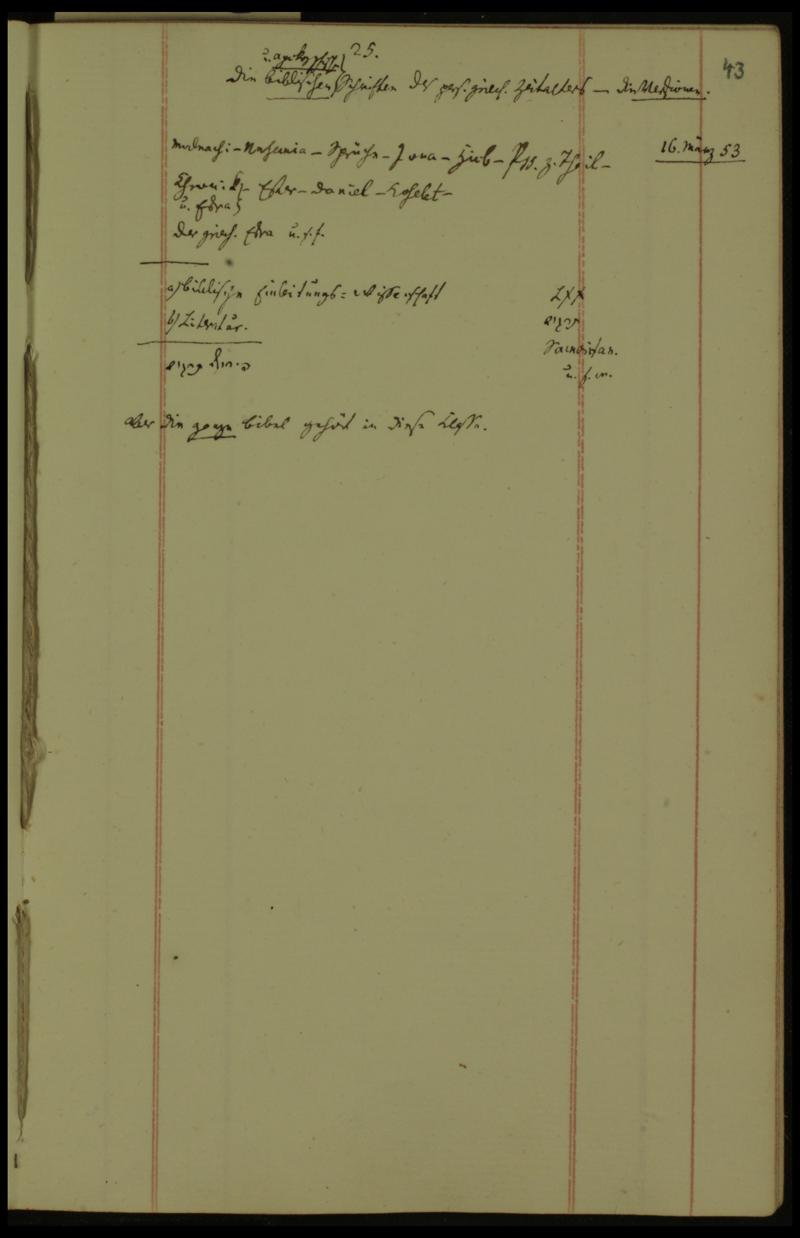 43
25.
u. apokryph.
Die biblischen Schriften des pers. griech. Zeitalters — die Versionen.
16. März 53
Maleachi – Nehemia – Sprüche – Jona – Hiob – Pss. z. Theil –
Chronik – Ester – Daniel – Kohelet –
u. Esra
Der griech. Esra u. s. f.
a) biblische Einleitungs=Wissenschaft LXX
b) Literatur.
Samaritan.
u. s. w.
Aber die ganze Bibel gehört in diese Classe.